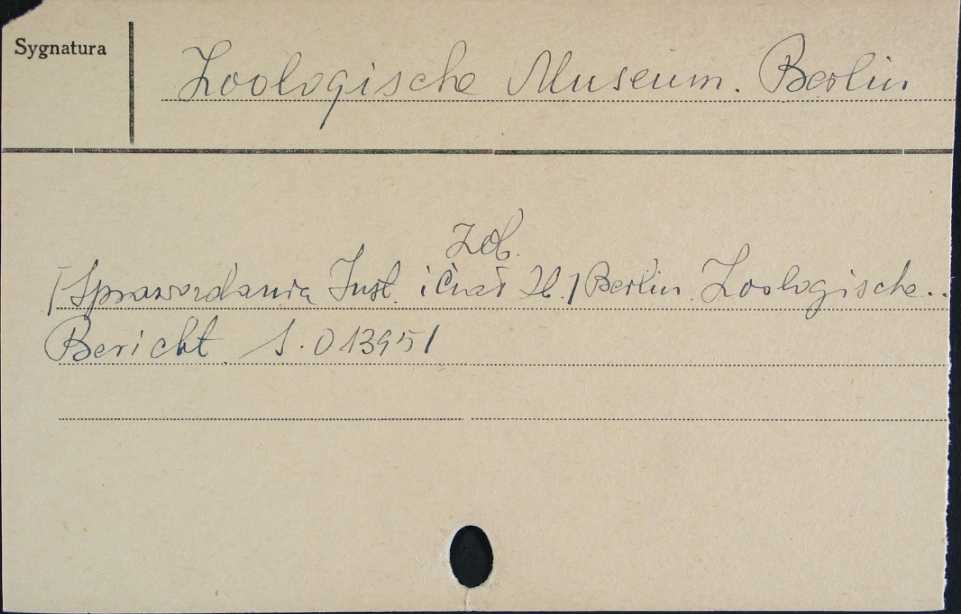 Sygnatura
Zoologische Museum. Berlin
Zob.
[Sprawozdania Inst. i] Berlin. Zoologische..
Bericht. S. 013951